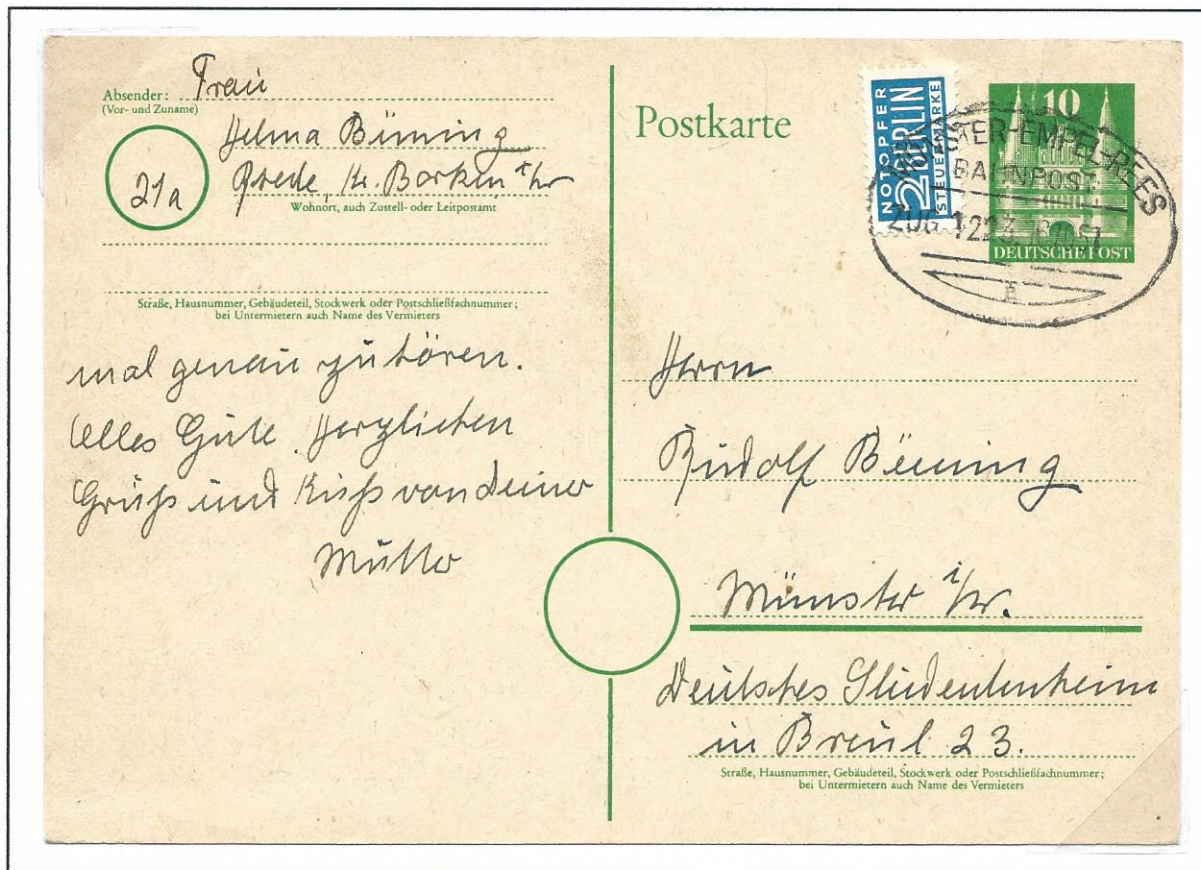 Absender: Frau
(Vor- und Zuname)
Helma Büning
21a
Rhede, Kr. Borken i/W
Wohnort, auch Zustell- oder Leitpostamt
Straße, Hausnummer, Gebäudeteil, Stockwerk oder Postschließfachnummer;
bei Untermietern auch Name des Vermieters
mal genau zu hören.
Alles Gute. Herzlichen
Gruß und Kuß von Deiner
Mutter
Postkarte
NOTOPFER
2 BERLIN
STEUERMARKE
10
DEUTSCHE POST
MÜNSTER-EMPEL-REES
BAHNPOST
ZUG 1223
Herrn
Rudolf Büning
Münster i/W.
Deutsches Studentenheim
in Breul 23.
Straße, Hausnummer, Gebäudeteil, Stockwerk oder Postschließfachnummer;
bei Untermietern auch Name des Vermieters